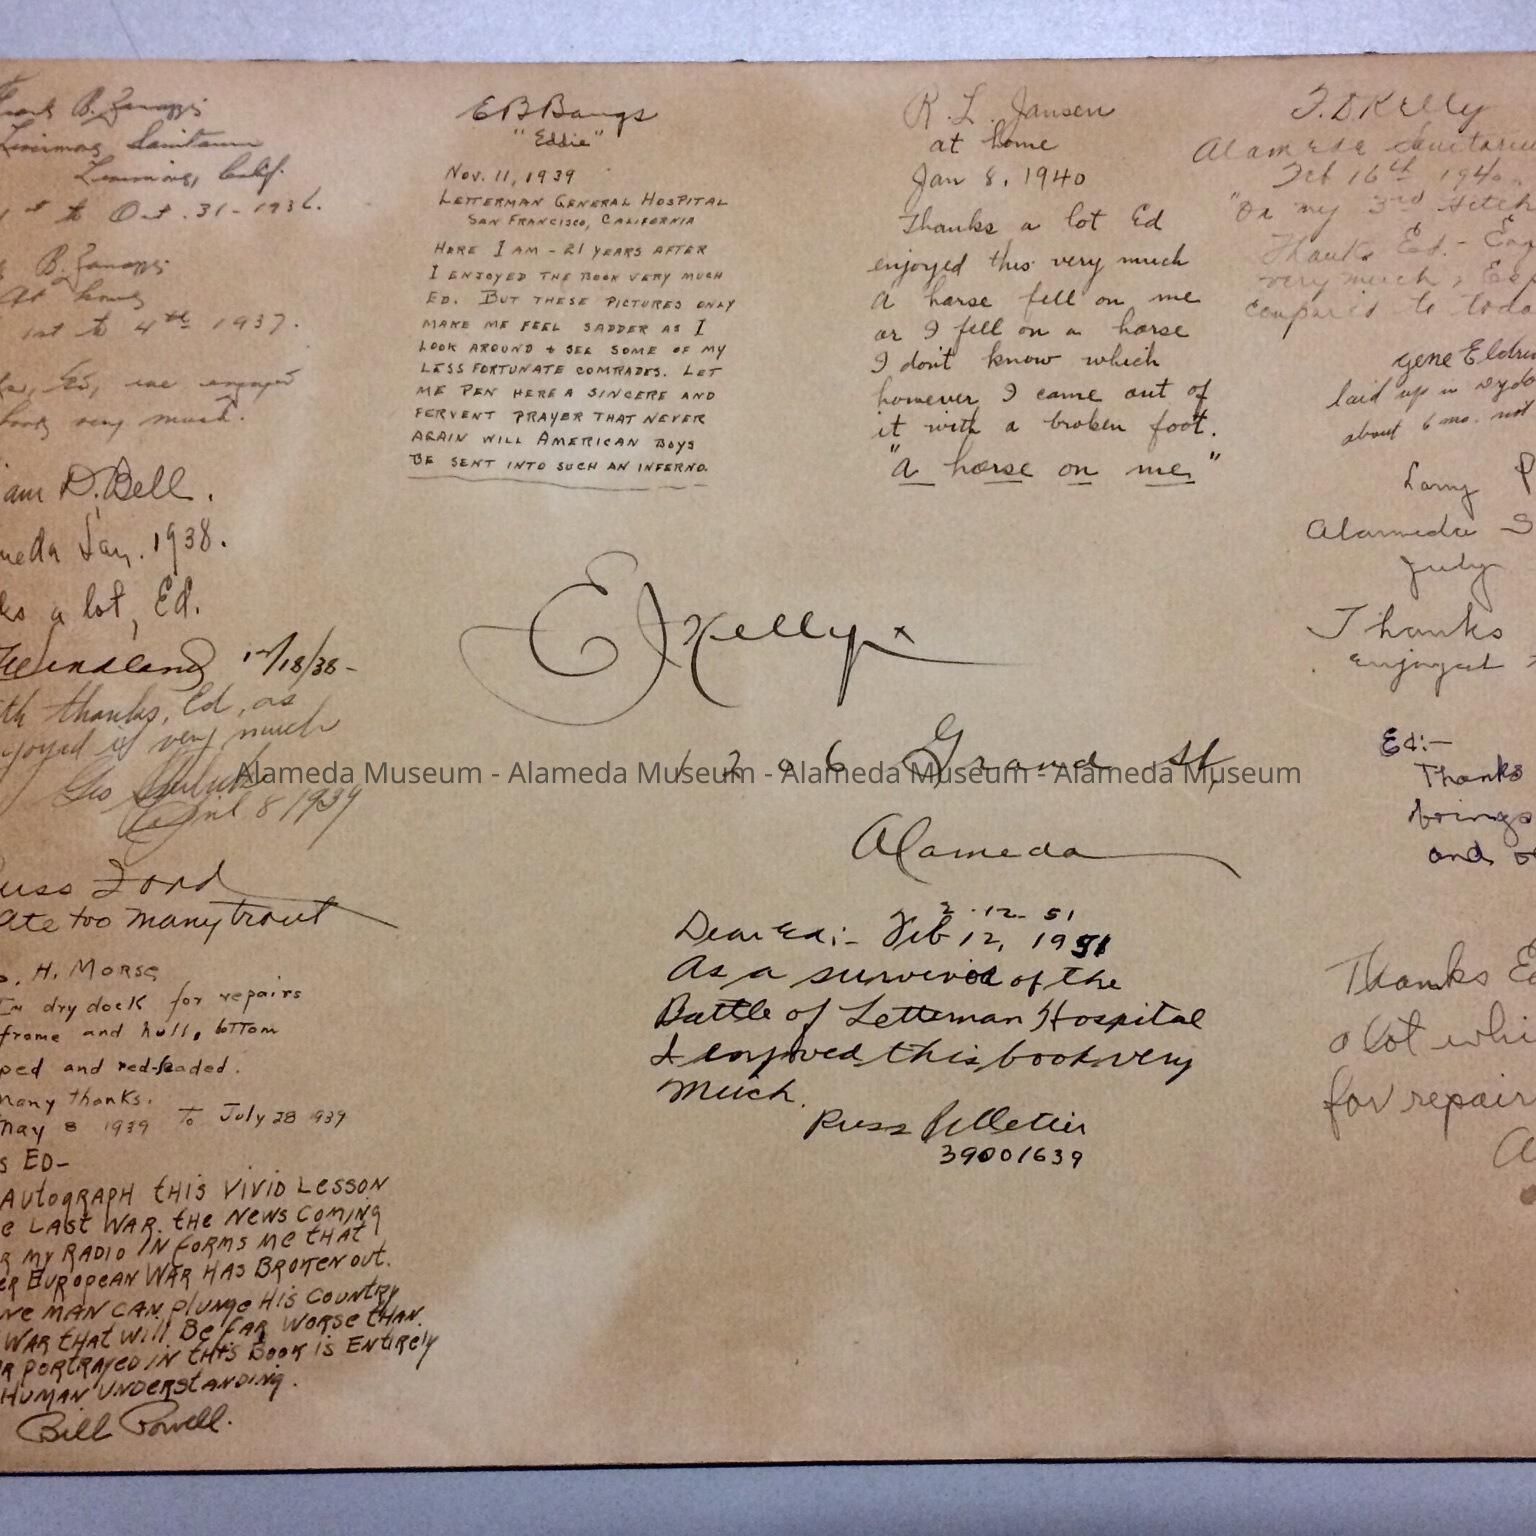 Frank B. Zanazzi
Sanitarium
Calif.
1st to Oct. 31-1936.
B. Zanazzi
At home
1st to 4th 1937.
Ed, we enjoyed
book very much.
iam D. Bell.
meda Jan. 1938.
ks a lot, Ed.
12/18/38-
th thanks, Ed, as
joyed it very much
Geo
April 8 1939
uss Ford
Ate too many trout
H. Morse
In dry dock for repairs
frame and hull, bottom
ped and red-leaded.
Many thanks.
May 8 1939 To July 28 939
s ED-
AUTOGRAPH THIS VIVID LESSON
e LAST WAR. THE NEWS COMING
R MY RADIO INFORMS ME THAT
ER EUROPEAN WAR HAS BROKEN OUT.
NE MAN CAN PLUNGE HIS COUNTRY
WAR THAT WILL BE FAR WORSE THAN
R PORTRAYED IN THIS BOOK IS ENTIRELY
HUMAN UNDERSTANDING.
Bill Powell.
E B Bangs
"Eddie"
Nov. 11, 1939
LETTERMAN GENERAL HOSPITAL
SAN FRANCISCO, CALIFORNIA
HERE I AM - 21 YEARS AFTER
I ENJOYED THE BOOK VERY MUCH
ED. BUT THESE PICTURES ONLY
MAKE ME FEEL SADDER AS I
LOOK AROUND + SEE SOME OF MY
LESS FORTUNATE COMRADES. LET
ME PEN HERE A SINCERE AND
FERVENT PRAYER THAT NEVER
AGAIN WILL AMERICAN BOYS
BE SENT INTO SUCH AN INFERNO.
R. L. Jansen
at home
Jan 8, 1940
Thanks a lot Ed
enjoyed this very much
A horse fell on me
or I fell on a horse
I don't know which
however I came out of
it with a broken foot.
"A horse on me"
E J Kelly
1206 Grand St,
Alameda
Alameda Museum - Alameda Museum - Alameda Museum - Alameda Museum
2-12-51
Dear Ed:- Feb 12, 1951
As a survivor of the
Battle of Letterman Hospital
I enjoyed this book very
much.
Russ Pelletier
39001639
T. D Kelly
Alameda Sanitariu
Feb 16th 1940
"On my 3rd Hitch
Thanks Ed - Enj
very much, Esp
compared to toda
Gene Eldre
laid up in
about 6 mo. not
Larry P
Alameda S
July
Thanks
enjoyed
Ed:-
Thanks
brings
and
Thanks Ed
a lot whi
for repair